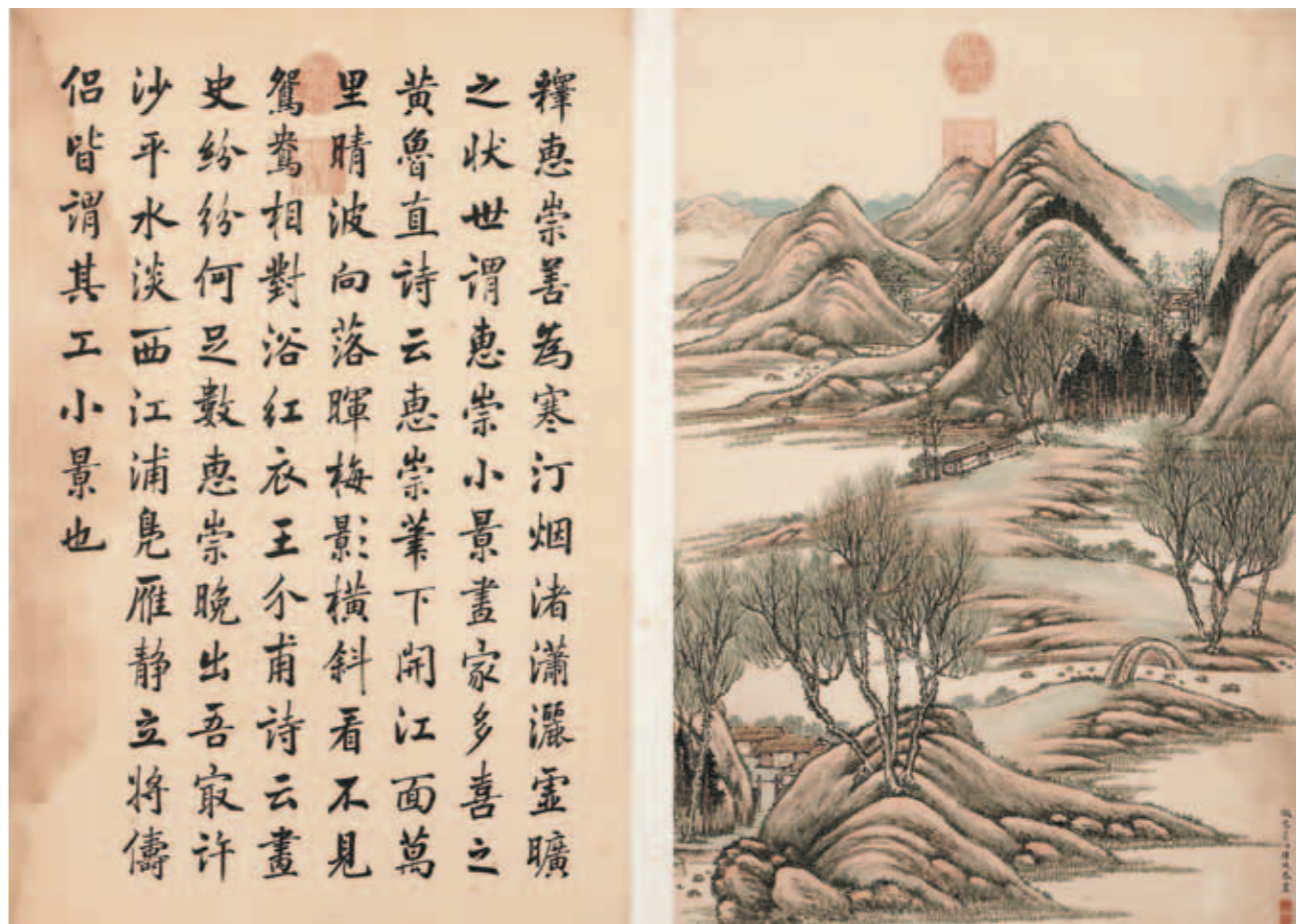 釋惠崇善為寒汀烟渚瀟灑虛曠
之状世謂惠崇小景畫家多喜之
黄魯直詩云惠崇筆下開江面萬
里晴波向落暉梅影橫斜看不見
鴛鴦相對浴紅衣王介甫詩云畫
史紛紛何足數惠崇晚出吾冣許
沙平水淡西江浦鳬雁静立將儔
侣皆謂其工小景也